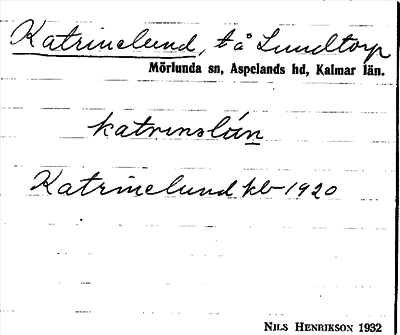 Katrinelund, t å Lundtorp
Mörlunda sn, Aspelands hd, Kalmar län.
katrinslún
Katrinelund kb 1920
NILS HENRIKSON 1932